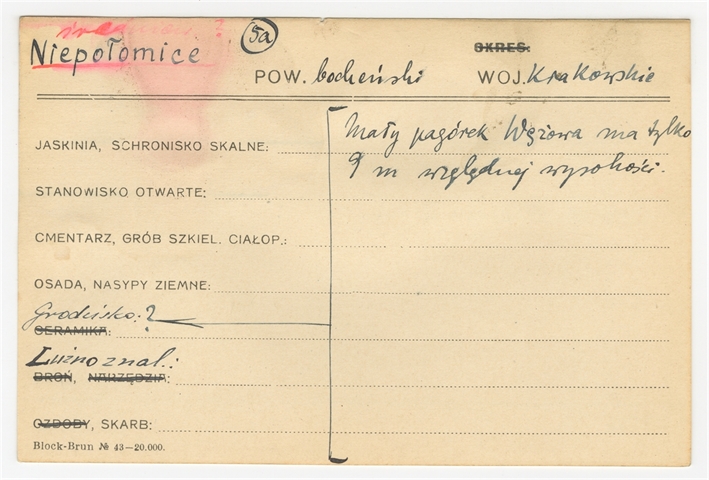 Niepołomice
5a
OKRES:
POW. bocheński WOJ. Krakowskie
Mały pagórek Wężowa ma tylko
9 m względnej wysokości.
JASKINIA, SCHRONISKO SKALNE:
STANOWISKO OTWARTE:
CMENTARZ, GRÓB SZKIEL. CIAŁOP.:
OSADA, NASYPY ZIEMNE:
Grodzisko: ?
CERAMIKA:
Luźno znal.:
BROŃ, NARZĘDZIA:
OZDOBY, SKARB:
Block-Brun № 43—20.000.